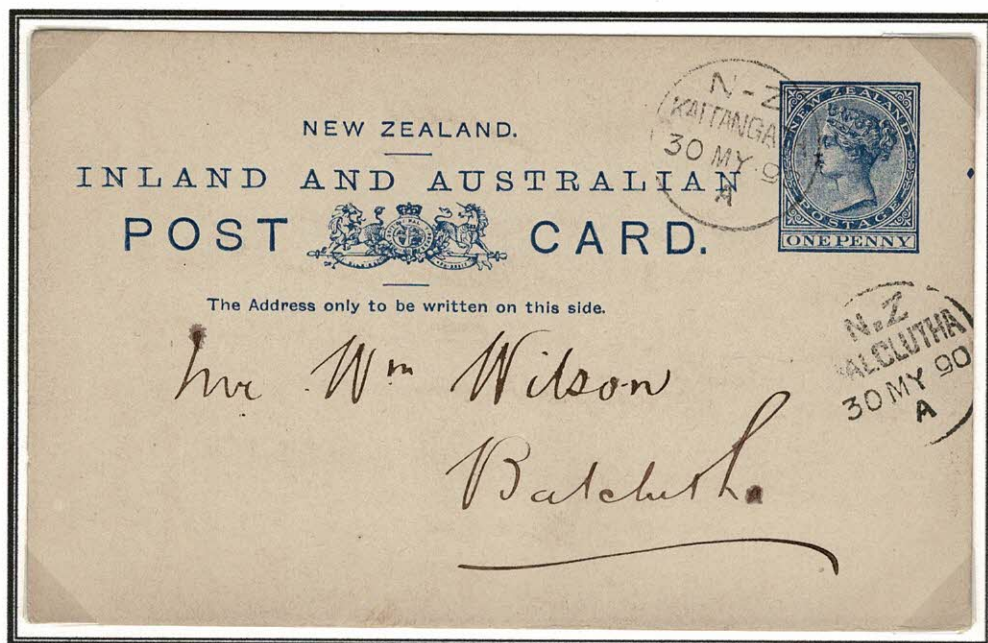 NEW ZEALAND.
INLAND AND AUSTRALIAN
POST CARD.
The Address only to be written on this side.
N-Z
KAITANGA
30 MY 9
A
NEW ZEALAND
POSTAGE
ONE PENNY
N.Z
ALCLUTHA
30 MY 90
A
Wm Wilson
Balclutha